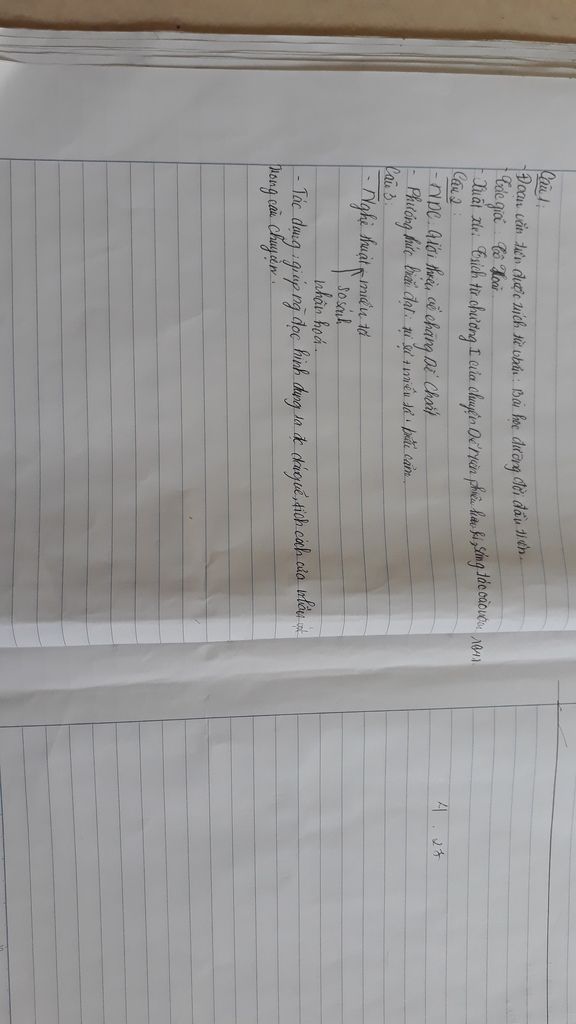 Câu 1:
- Đoạn văn trên được trích từ văn: Bài học đường đời đầu tiên.
- Tác giả: Tô Hoài
- Xuất xứ: Trích từ chương I của chuyện Dế Mèn phiêu lưu kí, sáng tác vào năm 1941
Câu 2:
- NDC: Giới thiệu về chàng Dế Choắt
- Phương thức biểu đạt: tự sự + miêu tả + biểu cảm.
Câu 3:
- Nghệ thuật miêu tả
so sánh
nhân hoá.
- Tác dụng: giúp ng đọc hình dung ra đc dáng vẻ, tích cách của nhân vật
trong câu chuyện.
4.